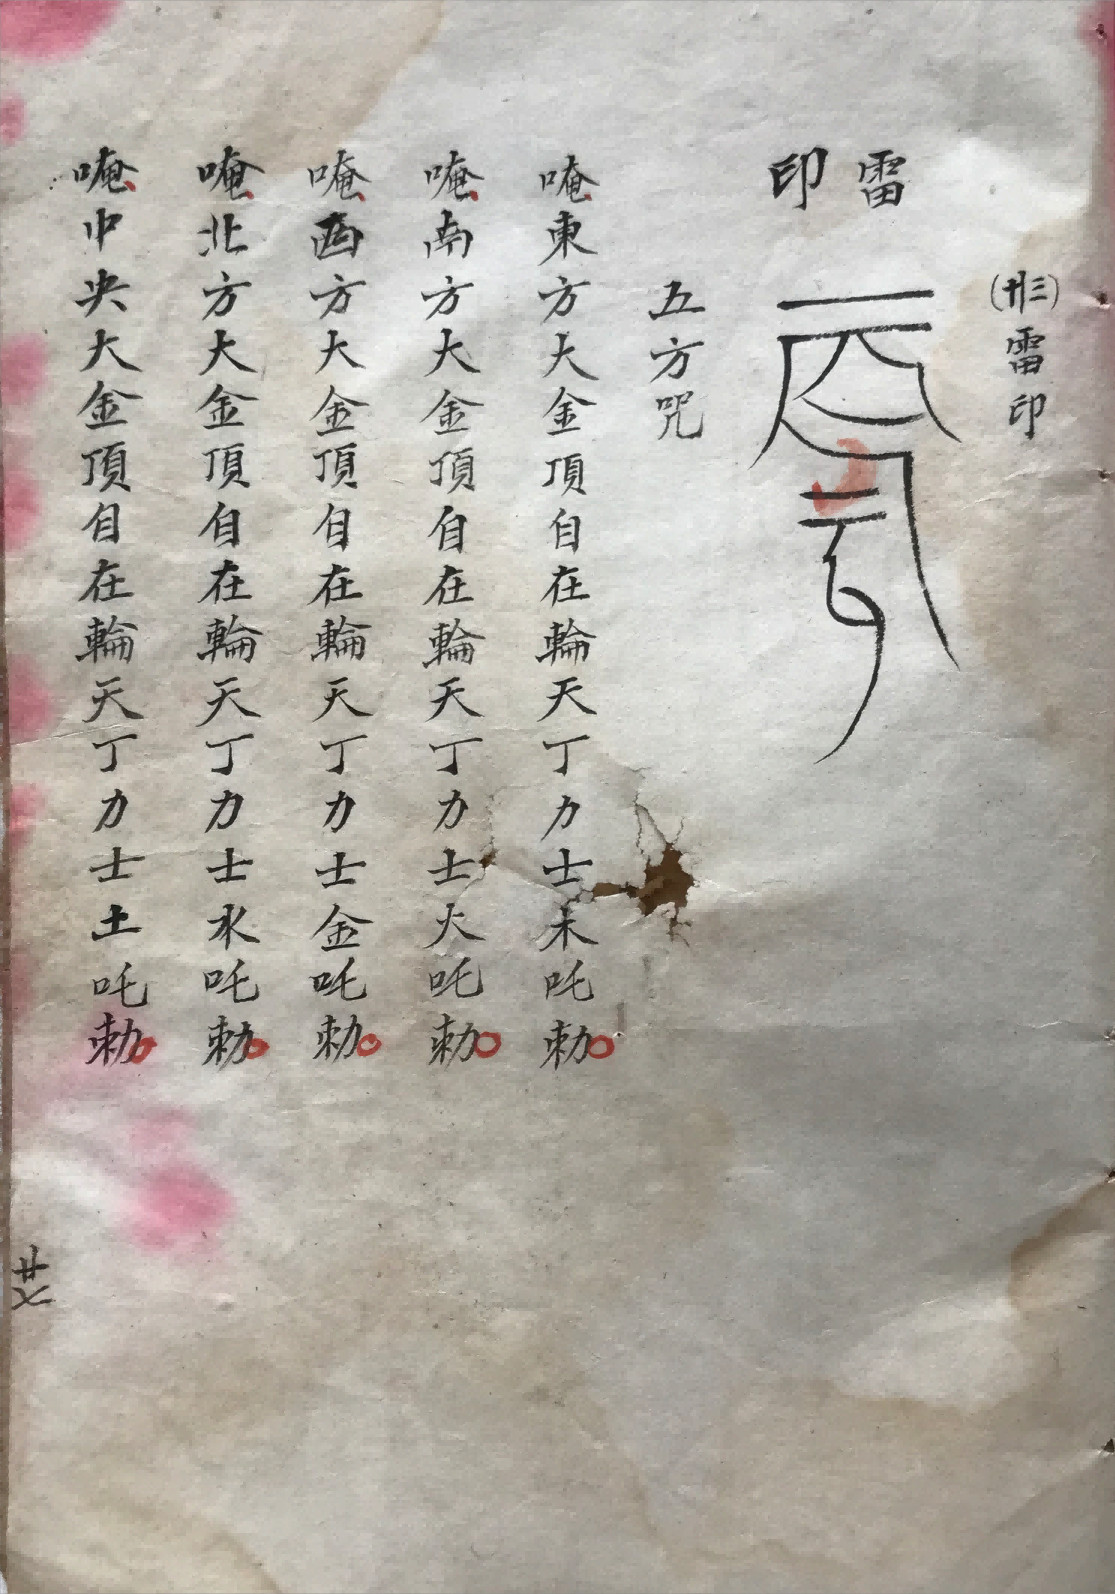 (卅三)雷印
雷印
五方咒
唵東方大金頂自在輪天丁力士木吒勅
唵南方大金頂自在輪天丁力士火吒勅
唵西方大金頂自在輪天丁力士金吒勅
唵北方大金頂自在輪天丁力士水吒勅
唵中央大金頂自在輪天丁力士土吒勅